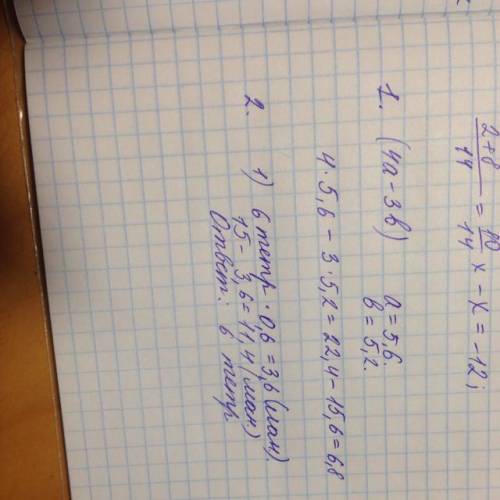 2+8/14 = 10/14 x - x = -12;
1. (4a - 3b) a = 5,6.
b = 5,2.
4·5,6 - 3·5,2 = 22,4 - 15,6 = 6,8
2. 1) 6 тетр. · 0,6 = 3,6 (ман).
15 - 3,6 = 11,4 (ман.)
Ответ: 6 тетр.